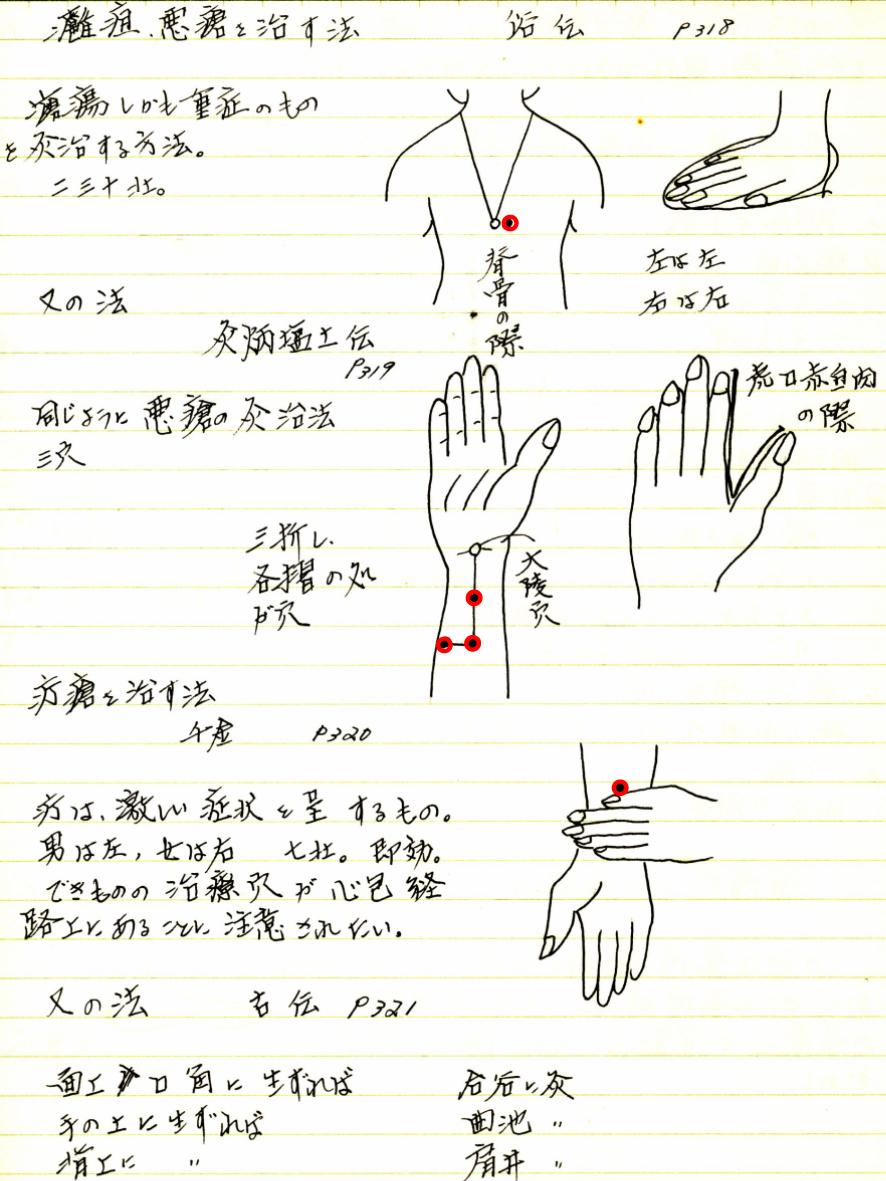 癰疽、悪瘡を治す法 俗伝 P318
瘡瘍しかも重症のもの
を灸治する方法。
二三十壮。
脊骨の際
左は左
右は右
又の法
灸焫塩土伝
P319
同じように悪瘡の灸治法
三穴
虎口赤白肉
の際
三折し、
各摺の処
が穴
大陵穴
疔瘡を治す法
千金 P320
疔は、激しい症状を呈するもの。
男は左，女は右 七壮。即効。
できものの治療穴が心包経
路上にあることに注意されたい。
又の法 古伝 P321
面上口角に生ずれば 合谷に灸
手の上に生ずれば 曲池 〃
背上に 〃 肩井 〃